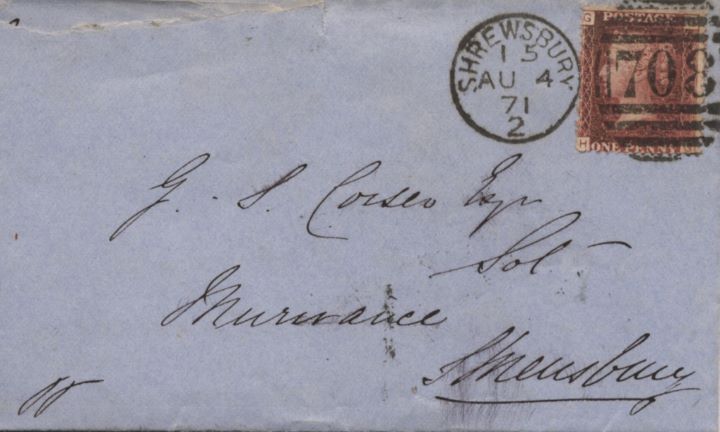 SHREWSBURY
1 5
AU 4
71
2
G
POSTAGE
708
H
ONE PENNY
G. S. Corser Esqr
Sol
Murivance
Shrewsbury